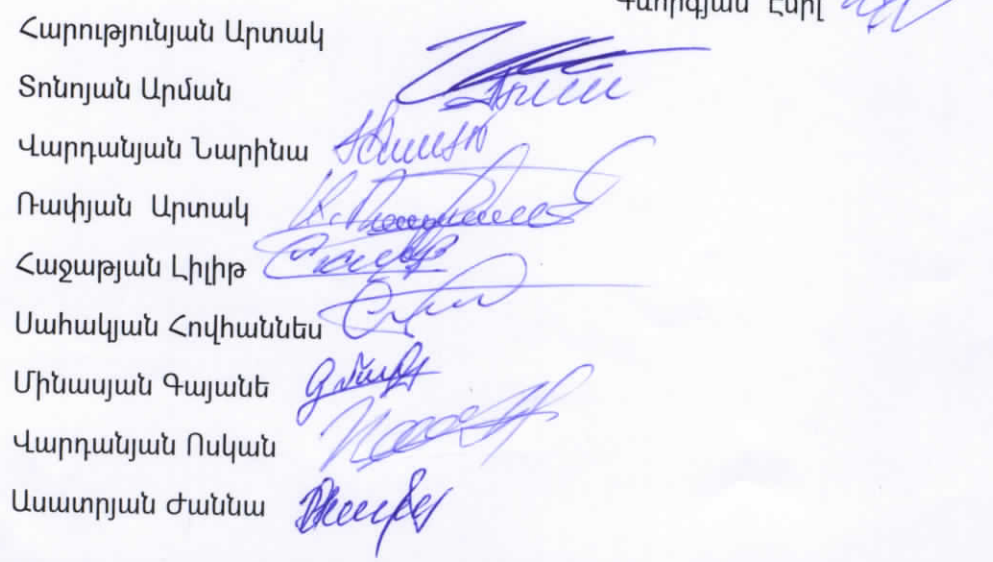 Գևորգյան Էմիլ
Հարությունյան Արտակ
Տոնոյան Արման
Վարդանյան Նարինա
Ռափյան Արտակ
Հաջաթյան Լիլիթ
Սահակյան Հովհաննես
Մինասյան Գայանե
Վարդանյան Ոսկան
Ասատրյան Ժաննա